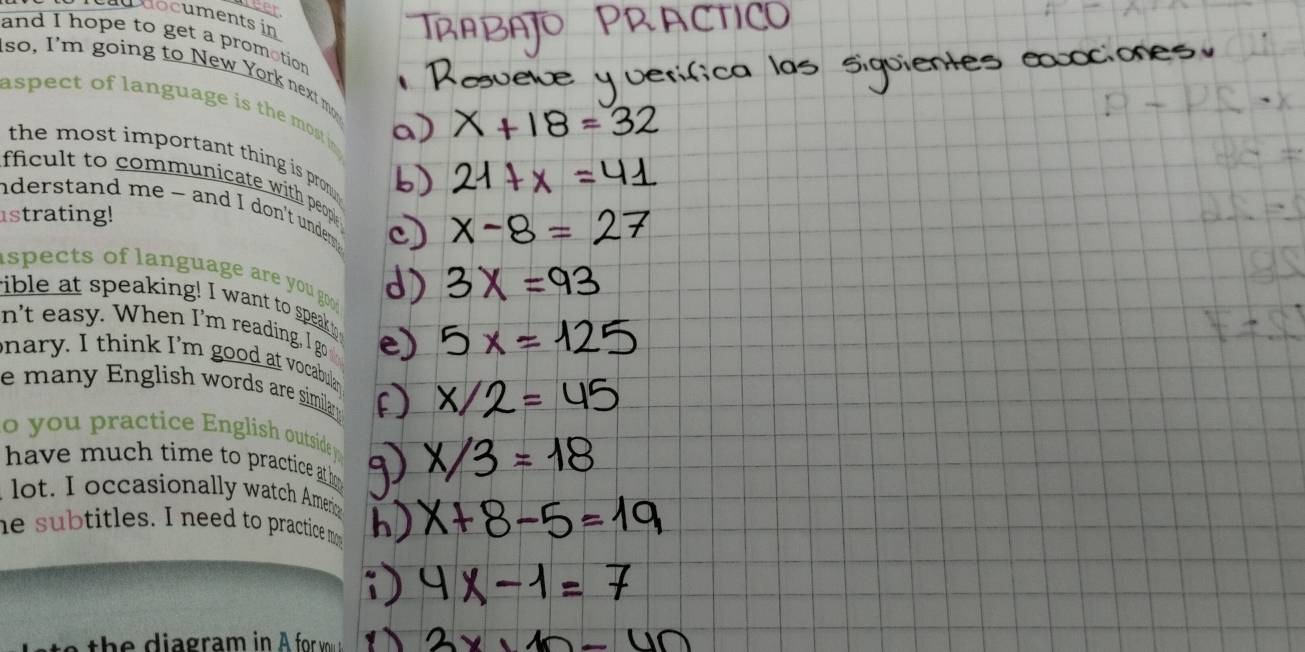 documents in
and I hope to get a promotion
lso, I'm going to New York next
aspect of language is the most
the most important thing is
fficult to communicate with people
nderstand me – and I don't
ustrating!
aspects of language are you good
rible at speaking! I want to speak
n't easy. When I'm reading, I go
onary. I think I'm good at vocabulary
e many English words are similar
o you practice English outside
have much time to practice at
lot. I occasionally watch
he subtitles. I need to practice
the diagram in A for
TRABAJO PRACTICO
1 Resuelve y verifica las siguientes ecuaciones.
a) x + 18 = 32
b) 21 + x = 41
c) x - 8 = 27
d) 3x = 93
e) 5x = 125
f) x/2 = 45
g) x/3 = 18
h) x + 8 - 5 = 19
i) 4x - 1 = 7